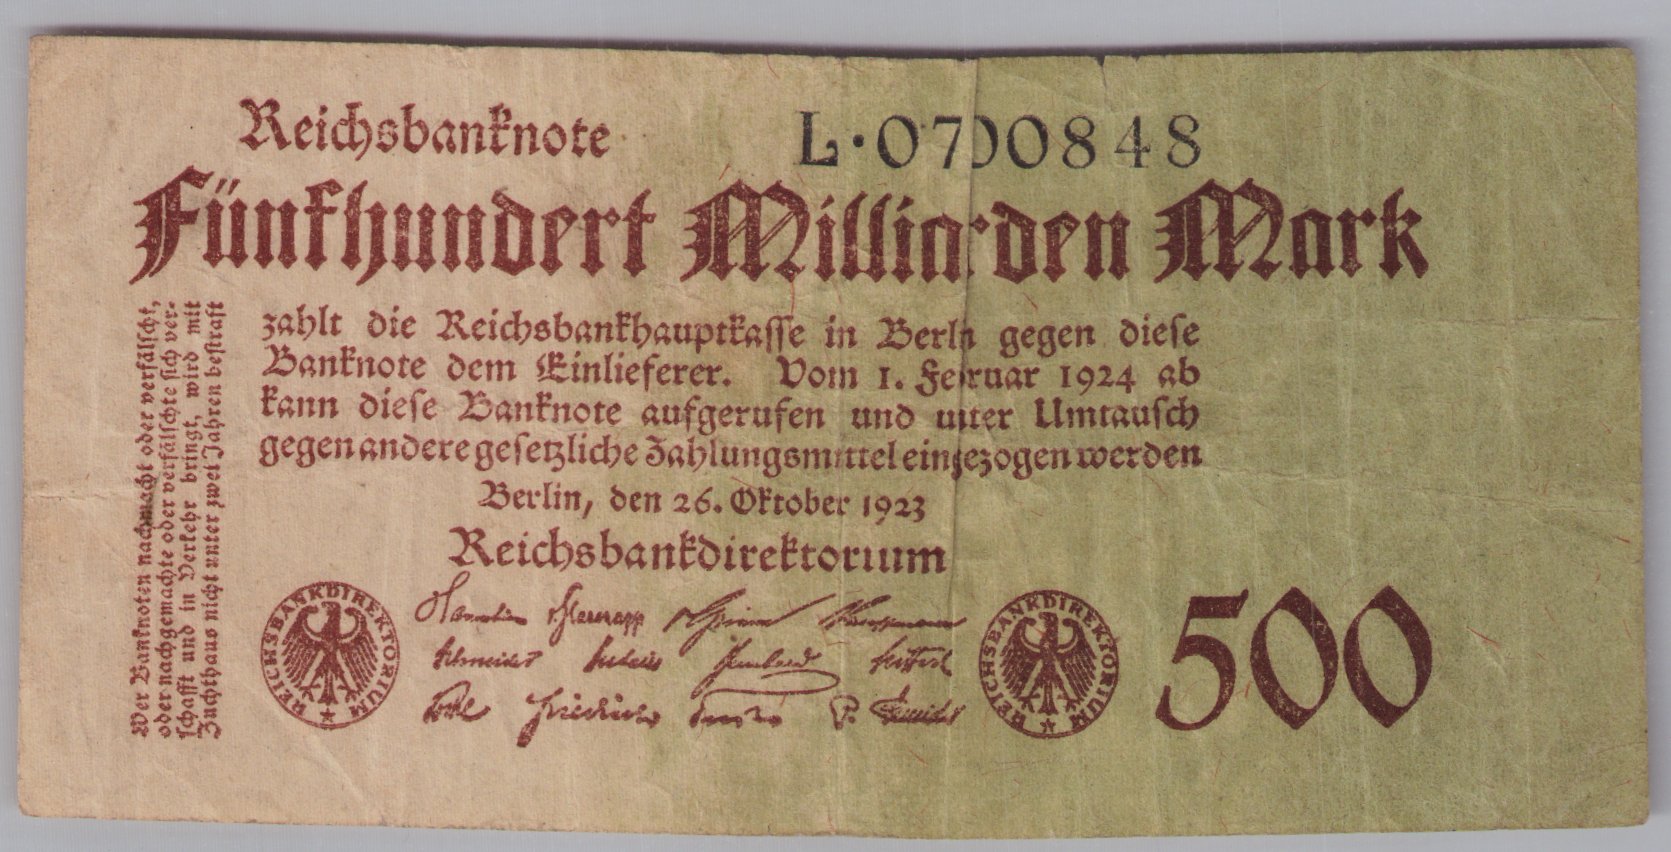 Reichsbanknote
L·0700848
Fünfhundert Milliarden Mark
zahlt die Reichsbankhauptkasse in Berlin gegen diese
Banknote dem Einlieferer. Vom 1. Februar 1924 ab
kann diese Banknote aufgerufen und unter Umtausch
gegen andere gesetzliche Zahlungsmittel eingezogen werden
Berlin, den 26. Oktober 1923
Reichsbankdirektorium
Wer Banknoten nachmacht oder verfälscht,
oder nachgemachte oder verfälschte sich ver-
schafft und in Verkehr bringt, wird mit
Zuchthaus nicht unter zwei Jahren bestraft
REICHSBANKDIREKTORIUM
REICHSBANKDIREKTORIUM
500